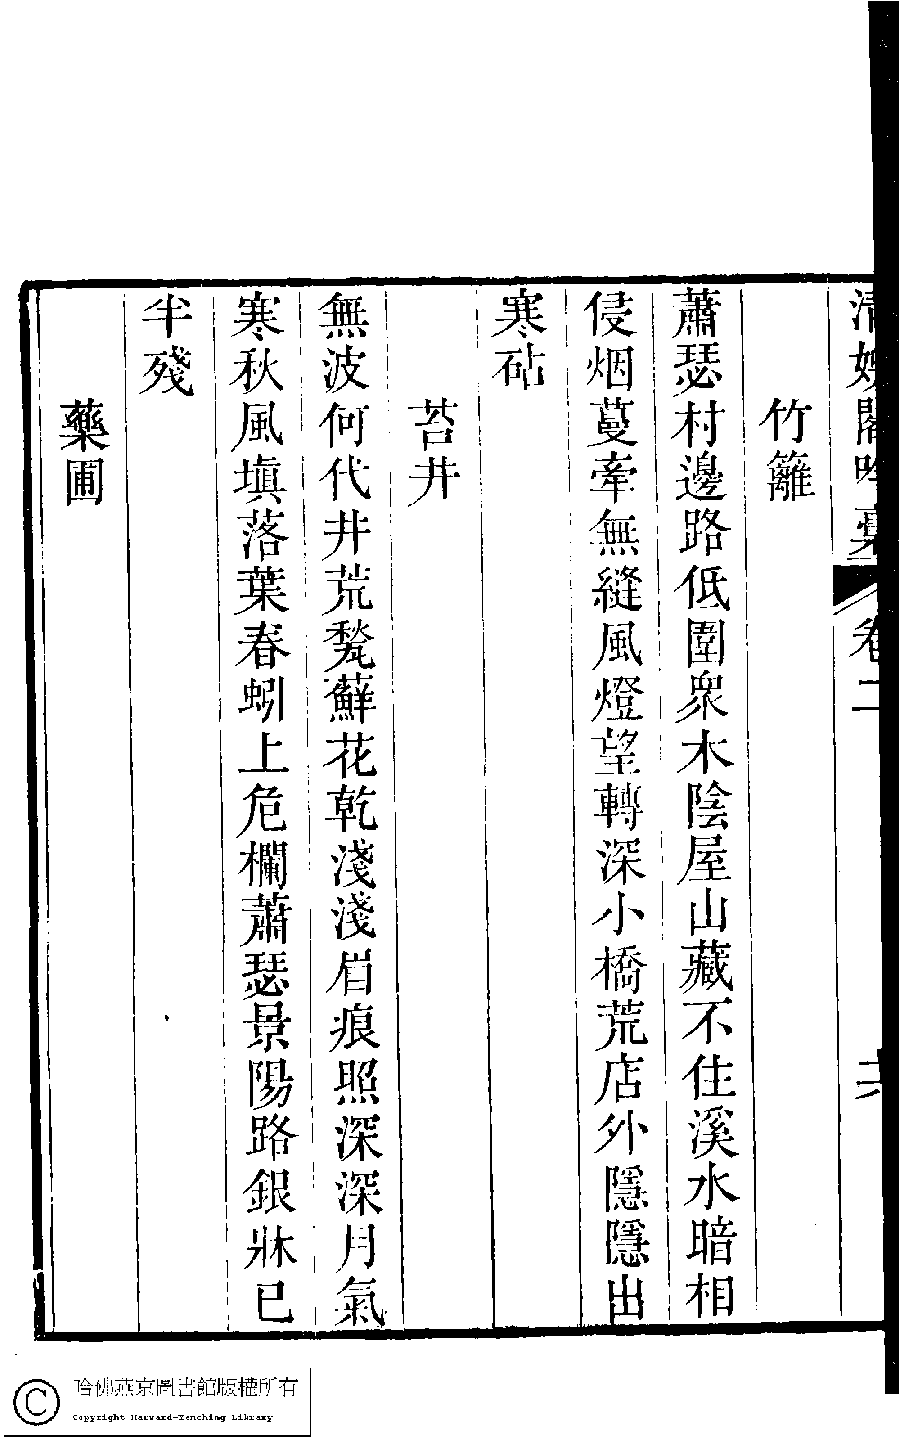 清娛閣吟稾 卷二 六
竹籬
蕭瑟村邊路低圍衆木陰屋山藏不住溪水暗相
侵烟蔓牽無縫風燈望轉深小橋荒店外隱隱出
寒砧
苔井
無波何代井荒甃蘚花乾淺淺眉痕照深深月氣
寒秋風塡落葉春蚓上危欄蕭瑟景陽路銀牀已
半殘
藥圃
哈佛燕京圖書館版權所有
Copyright Harvard-Yenching Library